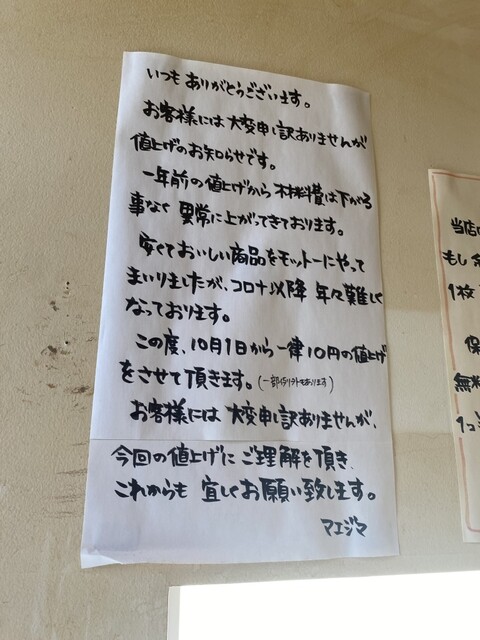 いつもありがとうございます。
お客様には大変申し訳ありませんが
値上げのお知らせです。
一年前の値上げから材料費は下がる
事なく異常に上がってきております。
安くておいしい商品をモットーにやって
まいりましたが、コロナ以降年々難しく
なっております。
この度、10月1日から一律10円の値上げ
をさせて頂きます。(一部例外もあります)
お客様には大変申し訳ありませんが、
今回の値上げにご理解を頂き、
これからも宜しくお願い致します。
マエジマ
当店
もし
1枚
保
無料
1コ